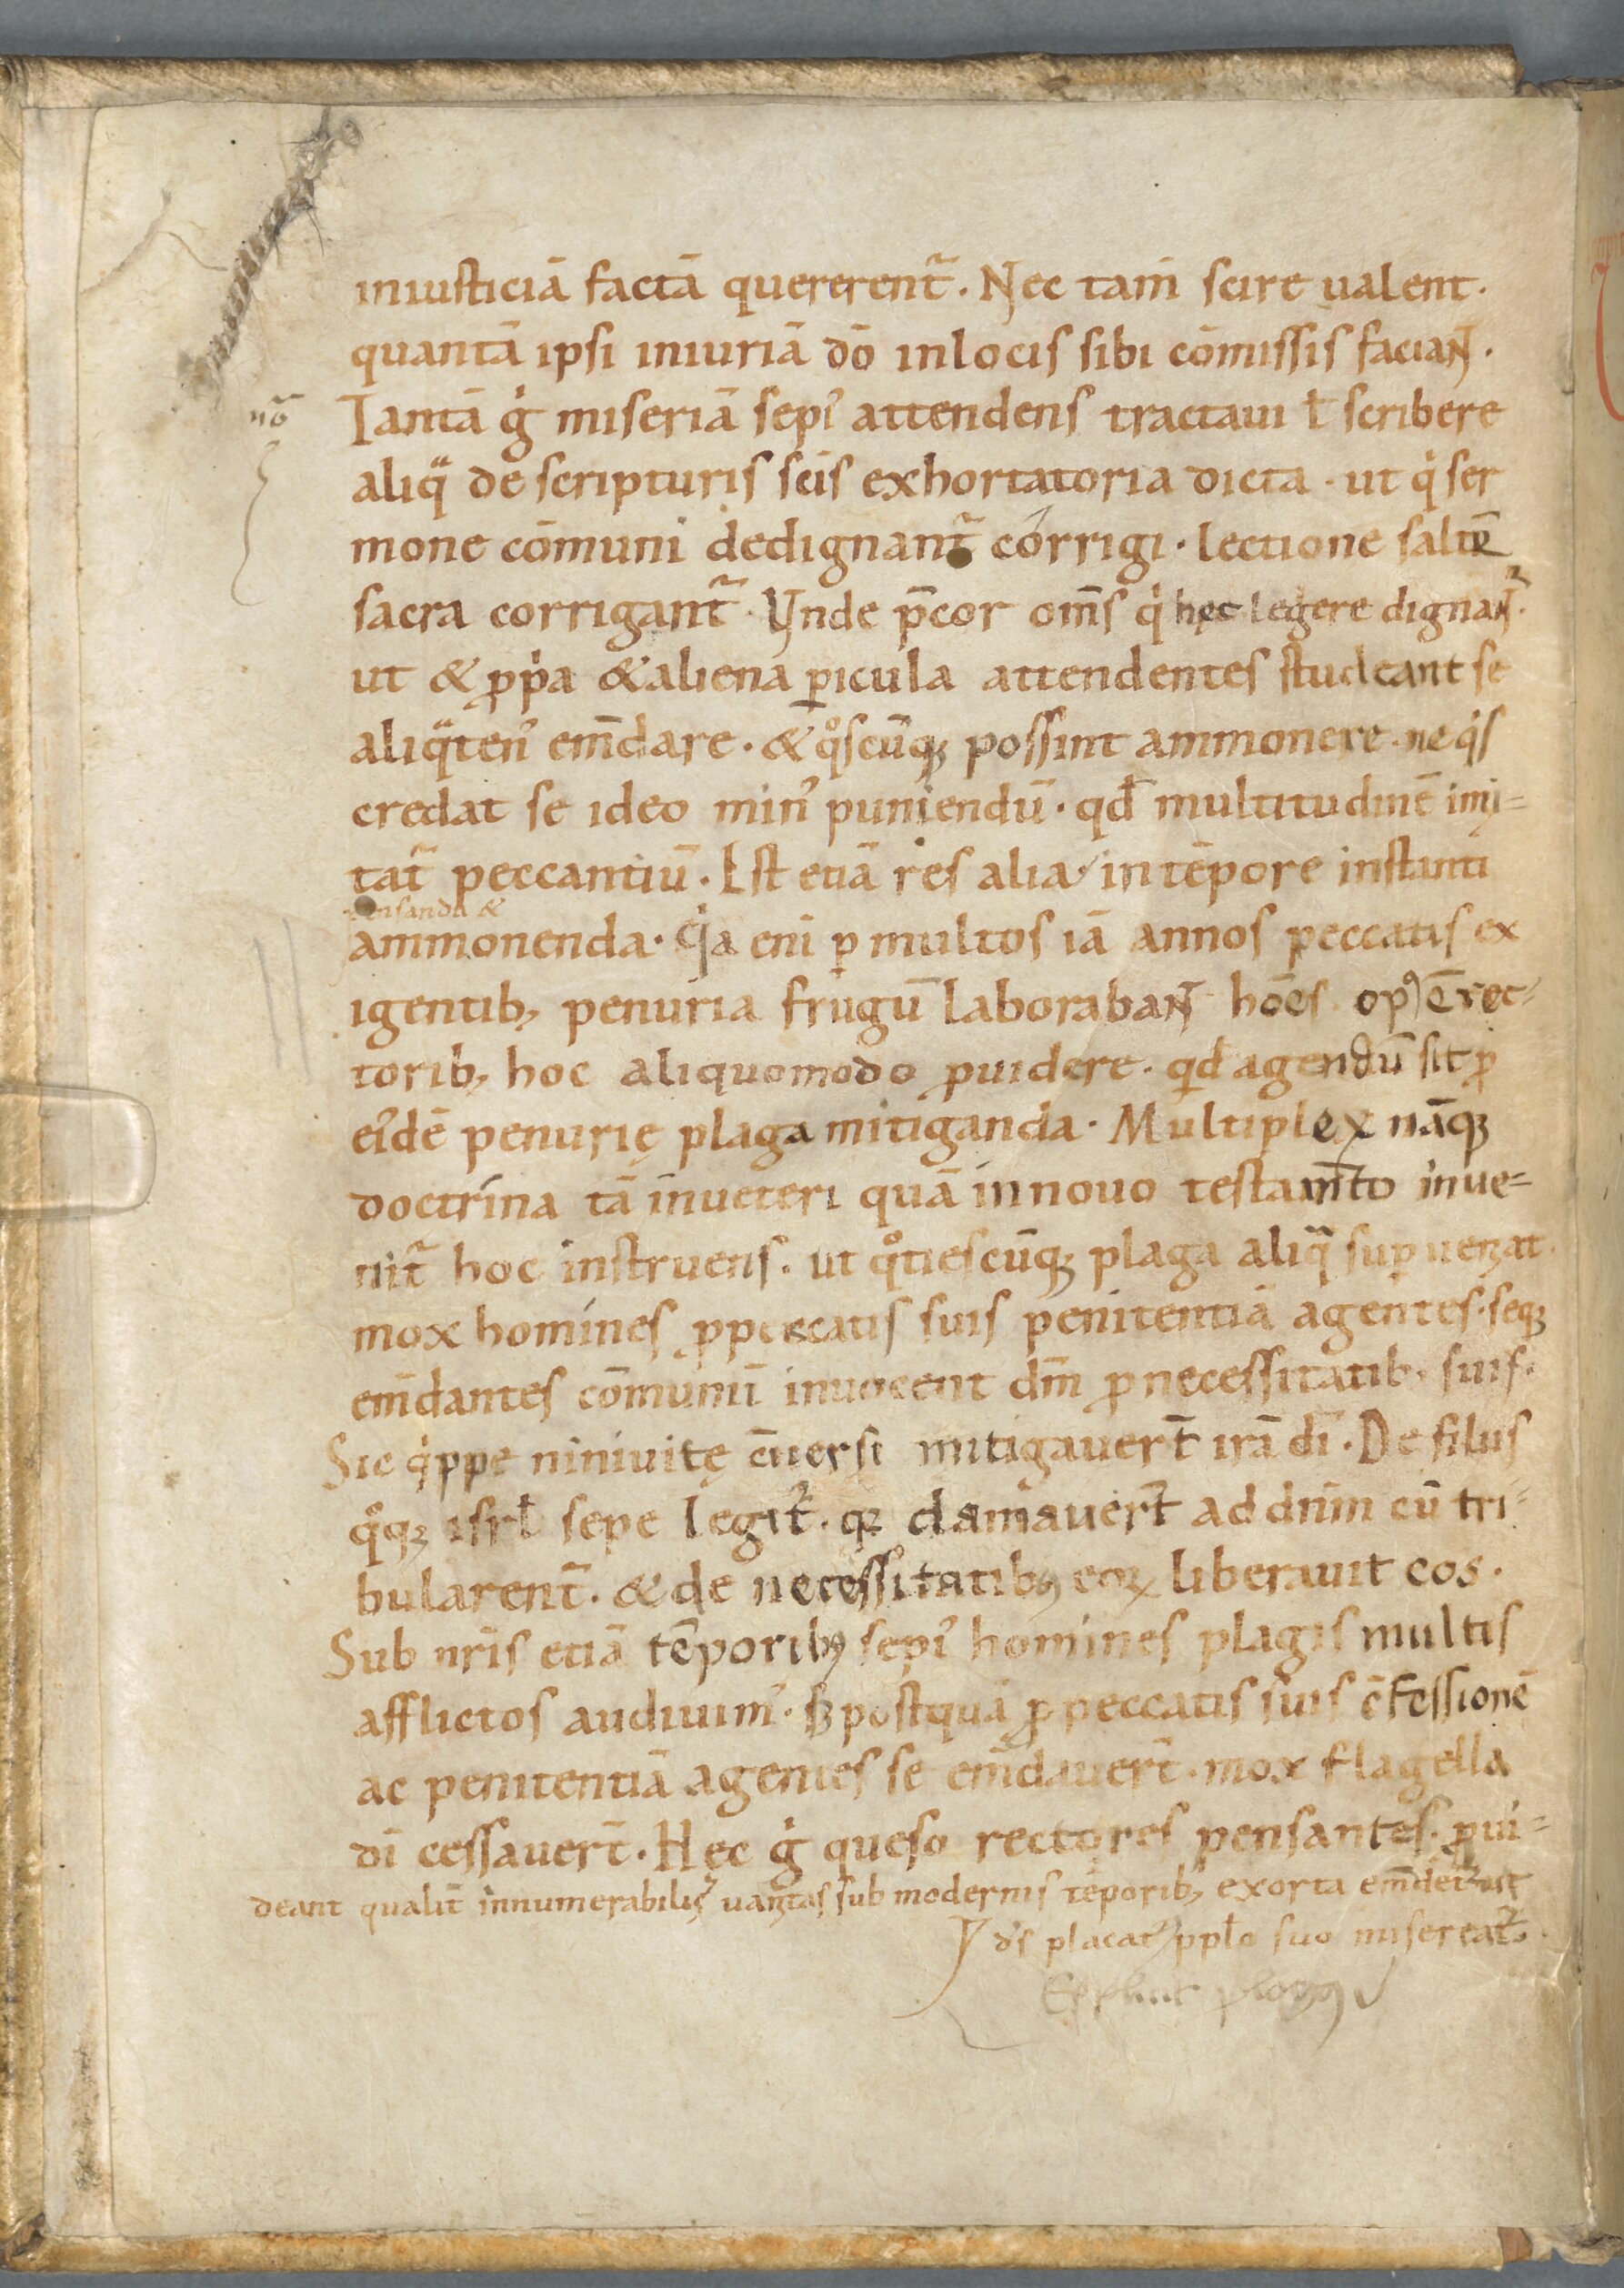 iniusticiā factā quererent᷑. Nec tam̄ scire ualent.
quantā ipsi iniuriā dō inlocis sibi cōmissis faciaN̄.
nō Tantā ġ miseriā sepi᾽ attendens tractaui ł scribere
aliq̈ de scripturis sc̄is exhortatoria dicta. ut q̇ ser
mone cōmuni dedignant᷑ corrigi. lectione saltē
sacra corrigant᷑. Vnde p̄cor om̄s q̇ hęc legere dignaN᷑.
ut & ꝓp̍a & aliena ꝑicula attendentes studeant se
aliq̈ten᾽ em̄dare. & q̊scūq; possint ammonere. ne q̍s
credat se ideo min᾽ puniendū. qd̄ multitudinē imi=
tat᷑ peccantiū. Est etiā res alia in tēpore instanti
pensanda &
ammonenda. Q̇a eni ꝑ multos iā annos peccatis ex
igentib; penuria frugū laborabaN̄ hōēs. op᾽ ē rec=
torib; hoc aliquomodo ꝓuidere. qd̄ agendū sit ꝓ
ei᾽dē penurię plaga mitiganda. Multiplex nāq;
doctrina tā inueteri quā innouo testam̄to inue=
nit᷑ hoc instruens. ut q̊tiescūq; plaga aliq̈ suꝑueniat.
mox homines ꝓpeccatis suis penitentiā agentes. seq;
em̄dantes cōmunit̄ inuocent dm̄ ꝓnecessitatib; suis.
Sic q̍ppe niniuitę c̄uersi mitigauert̄ irā dī. De filiis
q̊q; isrł sepe legit᷑. qꝛ clamauert̄ ad dn̄m cū tri=
bularent᷑. & de necessitatib; eoꝝ liberauit eos.
Sub nr̄is etiā tēporib; sepi᾽ homines plagis multis
afflictos audiuim᾽. sꝫ postquā ꝓ peccatis suis c̄fessionē
ac penitentiā agentes se em̄dauert̄. mox flagella
dī cessauert̄. Hęc ġ queso rectores pensantes. ꝓui=
deant qualit̄ innumerabilis uanitas sub modernis tēporib; exorta em̄det᷑ ut
ds̄ placat᾽ ppło suo misereat᷑.